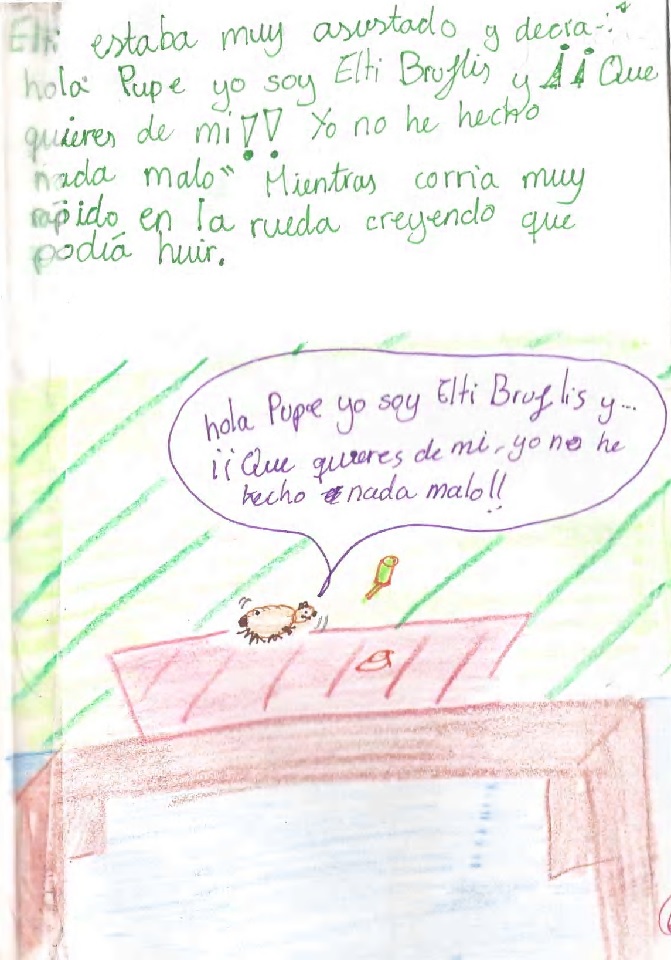 Elti estaba muy asustado y decia-:"
hola Pupe yo soy Elti Bruflis y ¡¡Que
quieres de mi!! Yo no he hecho
nada malo" Mientras corria muy
rapido en la rueda creyendo que
podía huir.
hola Pupe yo soy Elti Bruflis y...
¡¡Que quieres de mi, yo no he
hecho nada malo!!